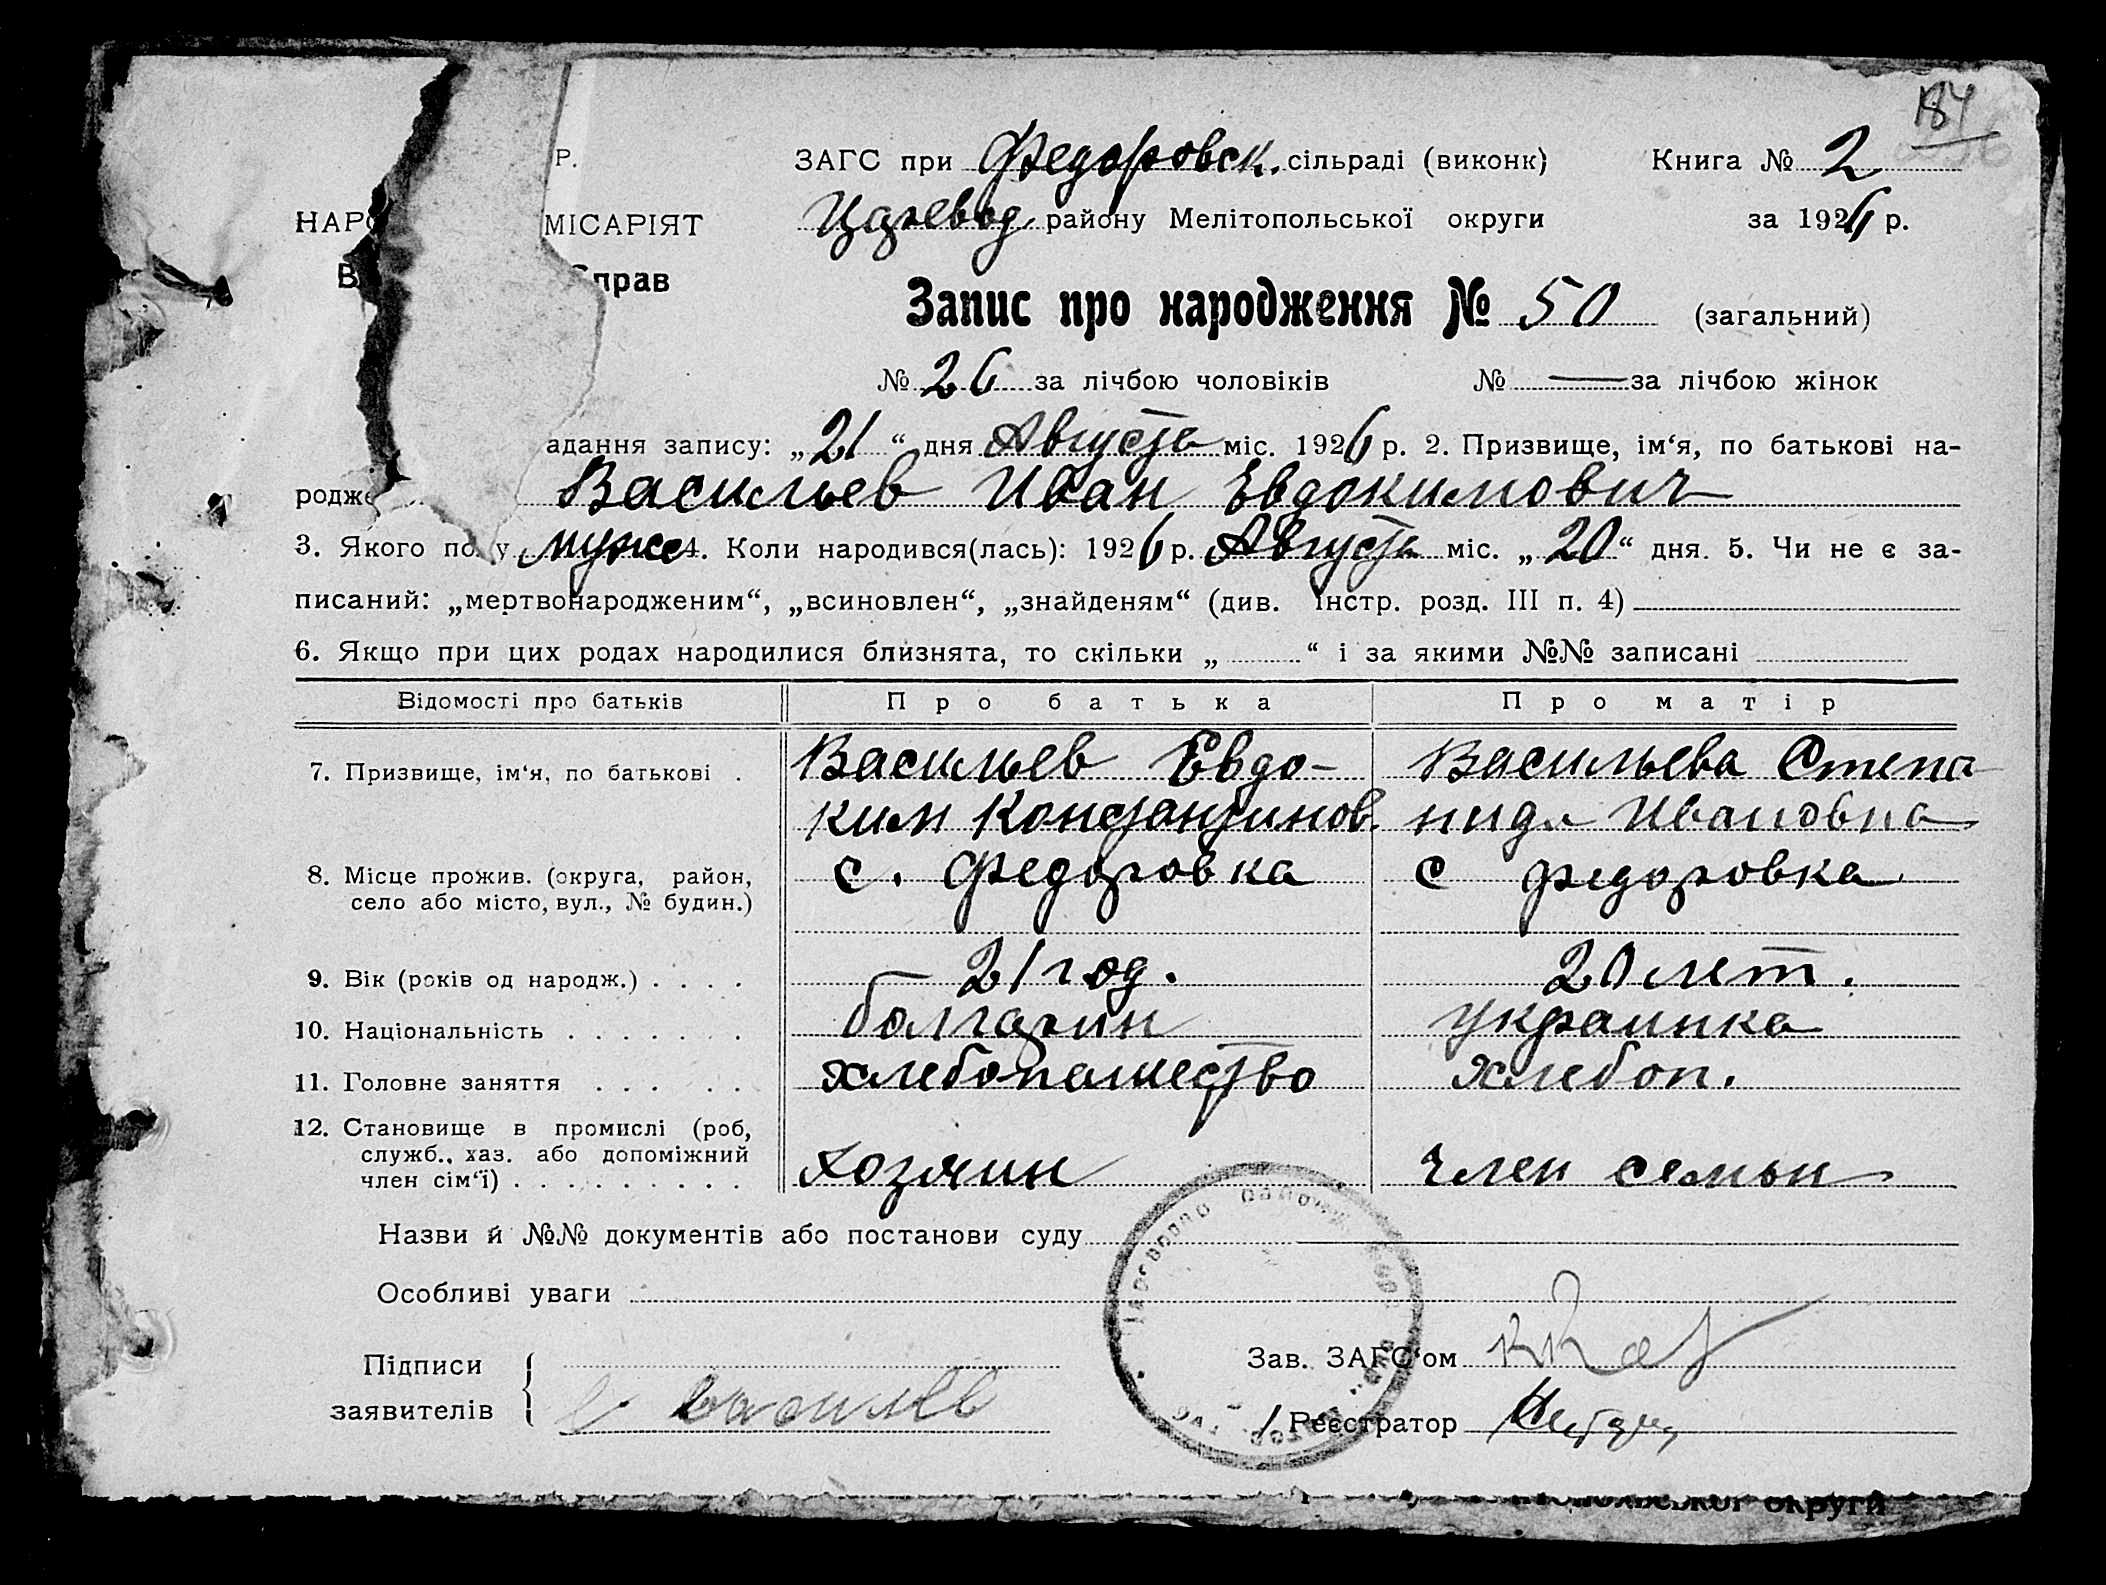 184
Р. ЗАГС при Федоровск. сільраді (виконк) Книга № 2
НАРО МІСАРІЯТ Царевод. району Мелітопольської округи за 1926 р.
В Справ
Запис про народження № 50 (загальний)
№ 26 за лічбою чоловіків № — за лічбою жінок
адання запису: „21“ дня Августа міс. 1926 р. 2. Призвище, ім‘я, по батькові на-
родже Васильев Иван Евдокимович
3. Якого полу муж. 4. Коли народився(лась): 1926 р. Августа міс. „20“ дня. 5. Чи не є за-
писаний: „мертвонародженим“, „всиновлен“, „знайденям“ (див. Інстр. розд. III п. 4)
6. Якщо при цих родах народилися близнята, то скільки „ “ і за якими №№ записані
Відомості про батьків Про батька Про матір
7. Призвище, ім‘я, по батькові . Васильев Евдо- Васильева Степа
ким Константинов. нида Ивановна
8. Місце прожив. (округа, район, с. Федоровка с Федоровка
село або місто, вул., № будин.)
9. Вік (років од народж.) . . . . 21 год. 20 лет.
10. Національність . . . . . . . болгарин украинка
11. Головне заняття . . . . . хлебопашество хлебоп.
12. Становище в промислі (роб,
служб., хаз. або допоміжний
член сім‘ї) . . . . . . . . . Хозяин член семьи
Назви й №№ документів або постанови суду
Особливі уваги
Підписи Зав. ЗАГС‘ом
заявителів Васильев Реєстратор
округи